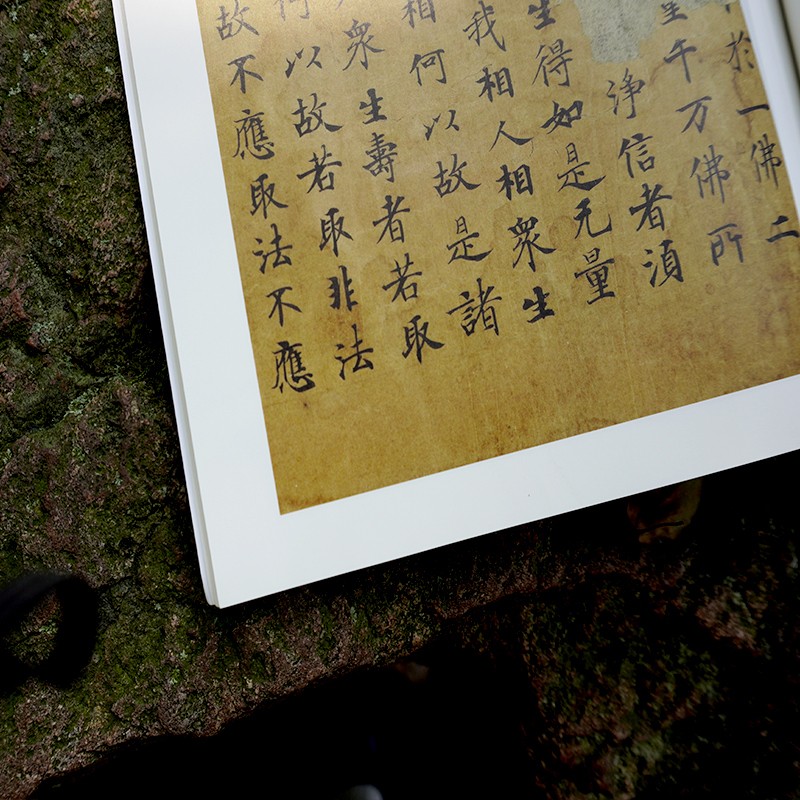 於一佛二
千万佛所
淨信者須
生得如是无量
我相人相衆生
相何以故是諸
衆生壽者若取
何以故若取非法
故不應取法不應